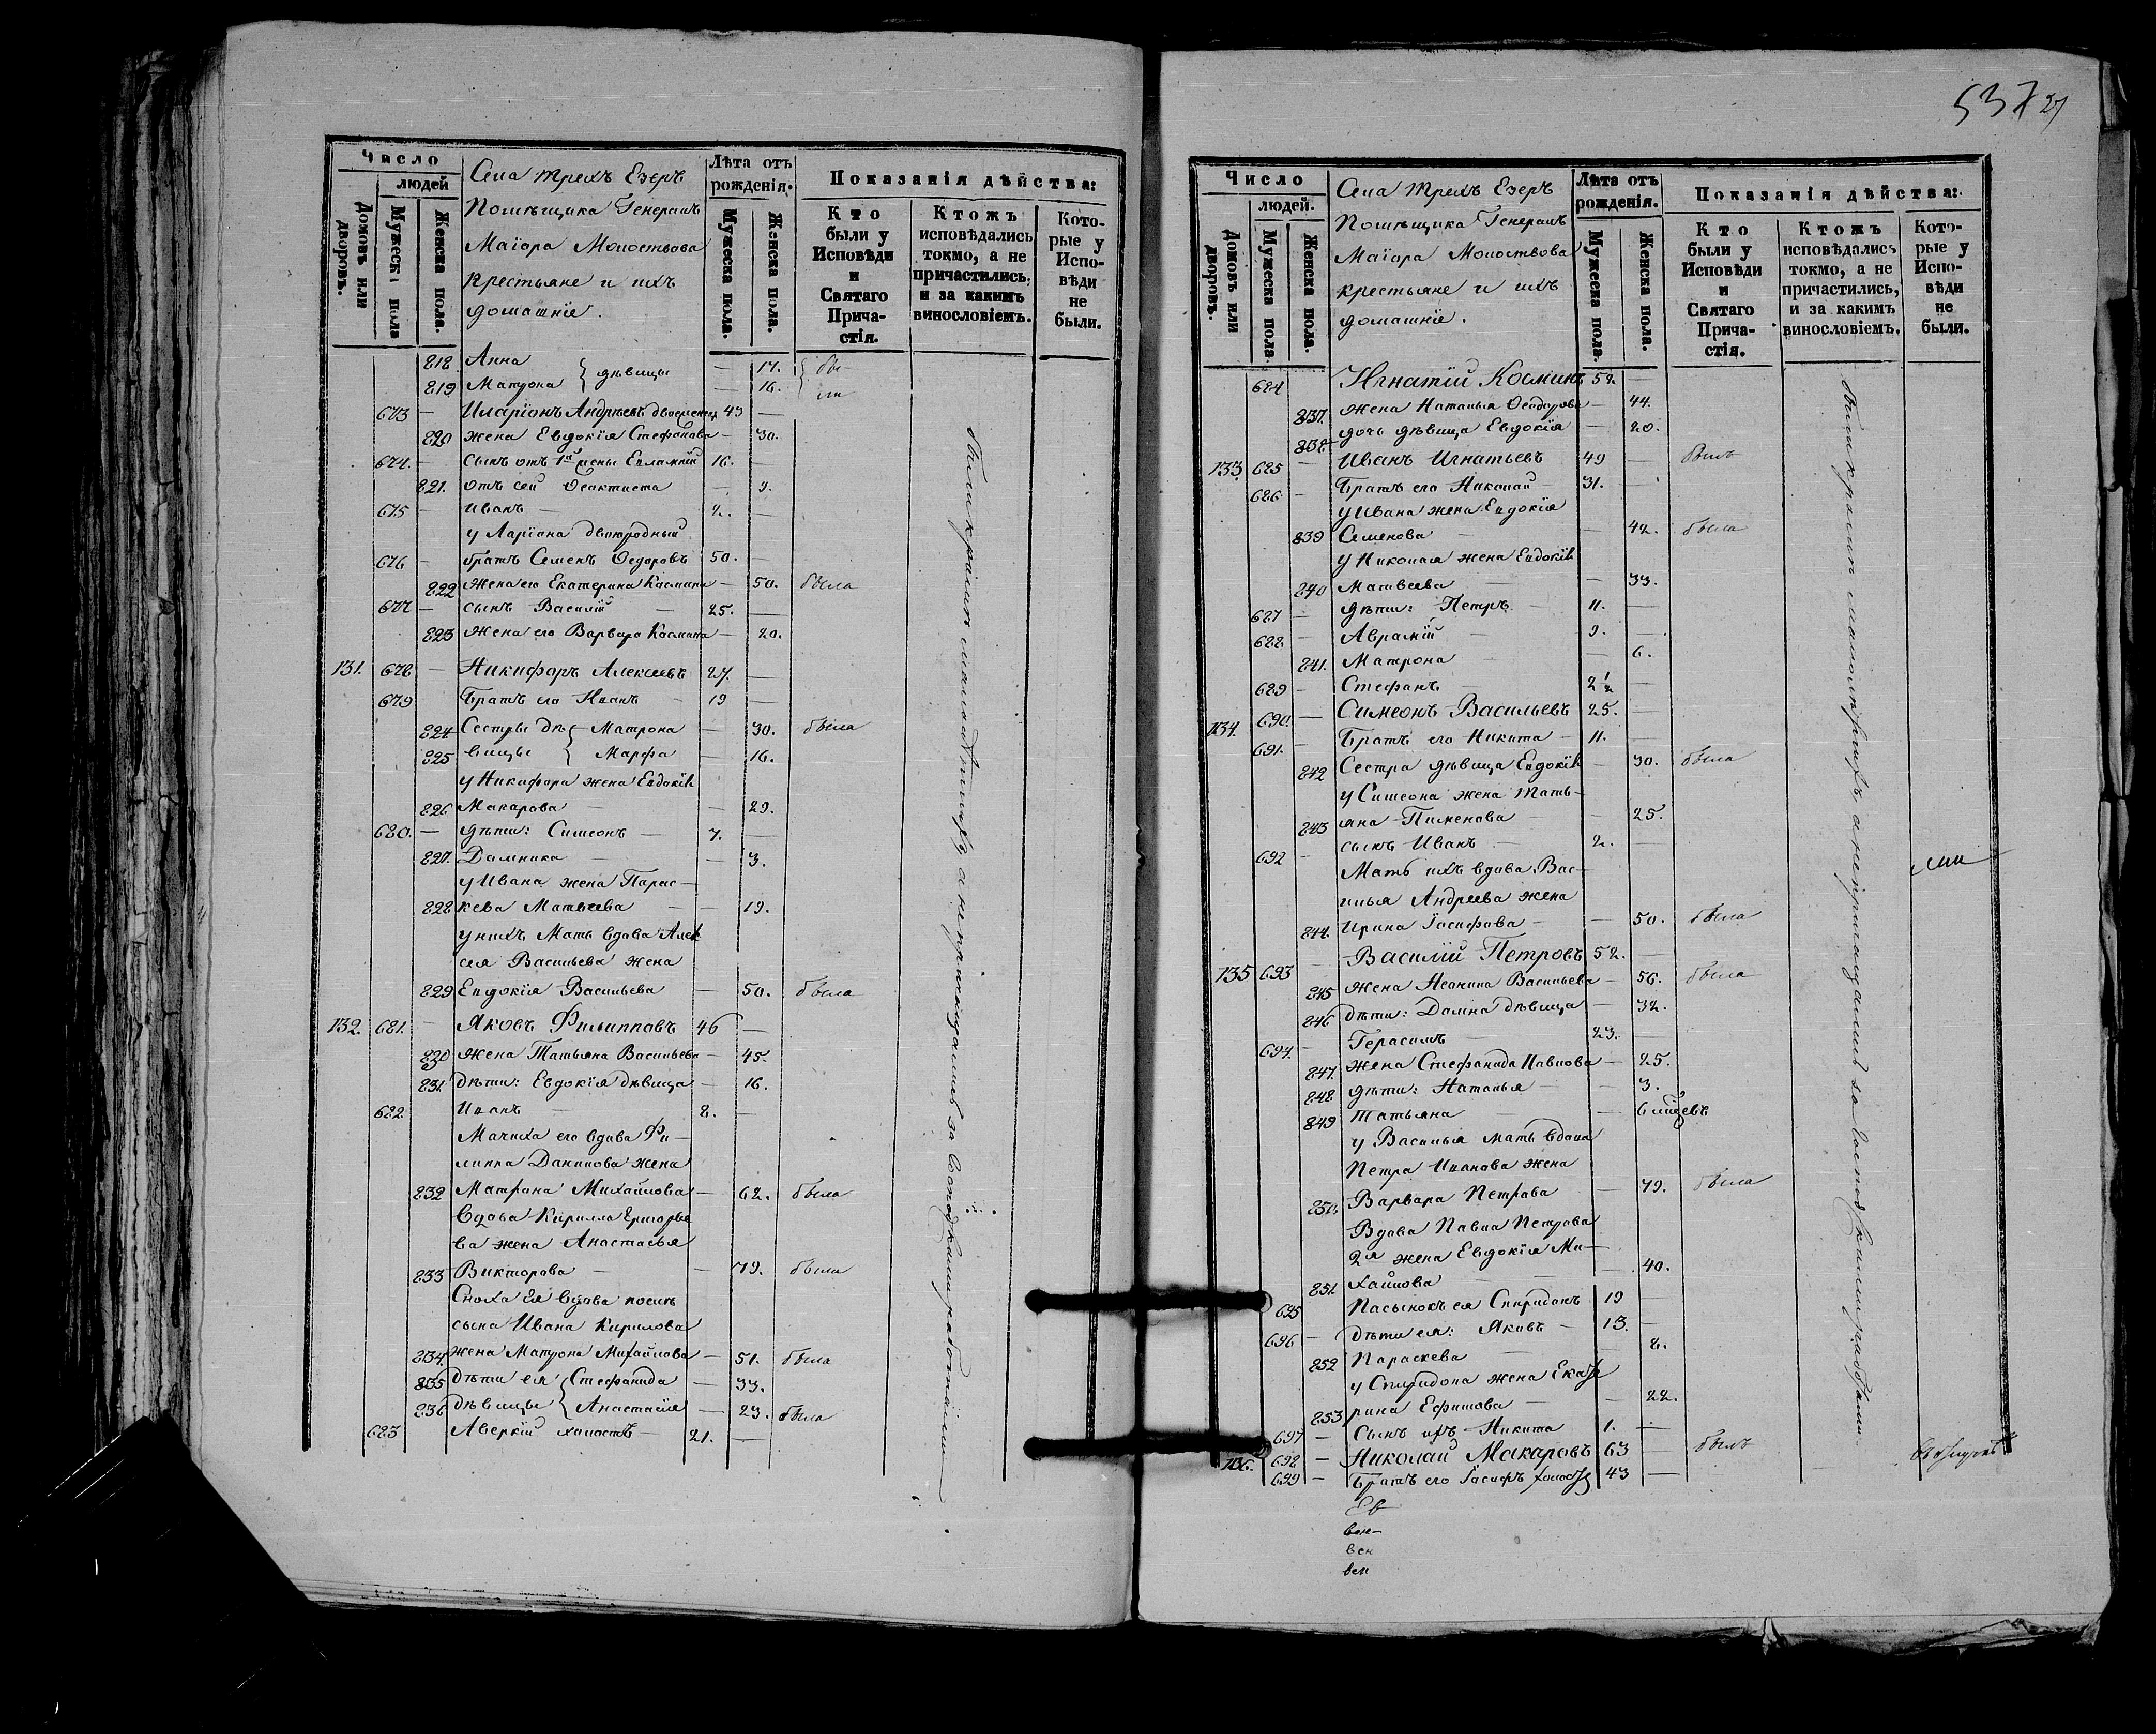 Число
людей
Домовъ или дворовъ.
Мужеска пола
Женска пола.
Села трехъ Езеръ
Помѣщика Генералъ
Маіора Молоствова
крестьяне и ихъ
домашніе.
Лѣта отъ рожденія.
Мужеска пола.
Женска пола.
Показанія дѣйства:
Кто были у Исповѣди и Святаго Причастія.
Ктожъ исповѣдались токмо, а не причастились, и за какимъ винословіемъ.
Которые у Исповѣди не были.
818 Анна — 17. бы-
819 Матрона } дѣвицы — 16. ли
673 — Иларіонъ Андреевъ двоеженецъ 43 —
820 жена Евдокія Стефанова — 30.
674. — сынъ отъ 1й жены Евлампій 16. —
821. отъ сей Ѳеоктиста — 9.
675 — Иванъ — 2. —
у Ларіона двоюродный
676 — братъ Семенъ Ѳедоровъ 50. —
822 жена его Екатерина Косьмина — 50. была
677 — сынъ Василій — 25. —
823 жена его Варвара Косьмина — 20.
131. 678 — Никифоръ Алексеевъ 27. —
679 Братъ его Иванъ — 19 —
824 Сестры дѣ- { Матрона — 30. была
825 вицы { Марфа — 16.
у Никифора жена Евдокія
826 Макарова — — 29.
680. — дѣти: Симеонъ — 7. —
827. Домника — — 3.
у Ивана жена Парас-
828 кева Матвеева — — 19.
у нихъ Мать вдова Алек
сея Васильева жена
829 Евдокія Васильева — 50. была
132. 681. — Яковъ Филипповъ 46 —
830 жена Татьяна Васильева — 45.
831. дѣти: Евдокія дѣвица — 16.
682 Иванъ — 8. —
Мачиха его вдова Фи-
липпа Данилова жена
832 Матрона Михайлова — 62. была
Вдова Кирилла Григорье
ва жена Анастасья
833 Викторова — — 79. была
Сноха ея вдова послѣ
сына Ивана Кирилова
834. жена Матрона Михайлова — 51. была
835 Дѣти ея { Стефанида — 33.
836 дѣвицы { Анастасія — 23. была
683 Аверкій холостъ — 21. —
Были кромѣ малолѣтнихъ, а не пріобщались за господскими работами
537 27
Число
людей.
Домовъ или дворовъ.
Мужеска пола.
Женска пола.
Села трехъ Езеръ
Помѣщика Генералъ
Маіора Молоствова
крестьяне и ихъ
домашніе.
Лѣта отъ рожденія.
Мужеска пола.
Женска пола.
Показанія дѣйства:
Кто были у Исповѣди и Святаго Причастія.
Ктожъ исповѣдались токмо, а не причастились, и за какимъ винословіемъ.
Которые у Исповѣди не были.
684 Игнатій Косминъ 52. —
837. жена Наталья Ѳеодорова — 44.
838 дочь дѣвица Евдокія — 20.
133. 685 — Иванъ Игнатьевъ 49 — былъ
686 — Братъ его Николай — 31. —
у Ивана жена Евдокія
839 Семенова — — 42. была
у Николая жена Евдокія
840 Матвеева — — 33.
687 — дѣти: Петръ — 11. —
688 — Аврамій — 9. —
841. Матрона — — 6.
689 — Стефанъ — 2 1/2 —
134. 690 — Симеонъ Васильевъ 25. —
691. — Братъ его Никита — 11. —
842 Сестра дѣвица Евдокія — 30. была
у Симеона жена Тать-
843 яна Пименова — — 25.
692 — сынъ Иванъ — 2. —
Мать ихъ вдова Вас-
илья Андреева жена
844. Ирина Іосифова — — 50. была
135 693 — Василій Петровъ 52. —
845 жена Неонила Васильева — 56. была
846 дѣти: Домна дѣвица — 32.
694. — Герасимъ — 23. —
847. жена Стефанида Павлова — 25.
848 дѣти: Наталья — — 3.
849 Татьяна — — 6
у Василья мать вдова
Петра Иванова жена
850. Варвара Петрова — 79. была
Вдова Павла Петрова
2я жена Евдокія Ми-
851. хайлова — — 40.
695 Пасынокъ ея Спиридонъ 19 —
696 — Дѣти ея: Яковъ — 13. —
852 Параскева — 8.
у Спиридона жена Екате
853 рина Ефимова — — 22.
697 — Сынъ ихъ Никита 1. —
136. 698 — Николай Макаровъ 63 — былъ
699 — Братъ его Іосифъ холостъ 43 —
Были кромѣ малолѣтнихъ, а не пріобщались за господскими работами